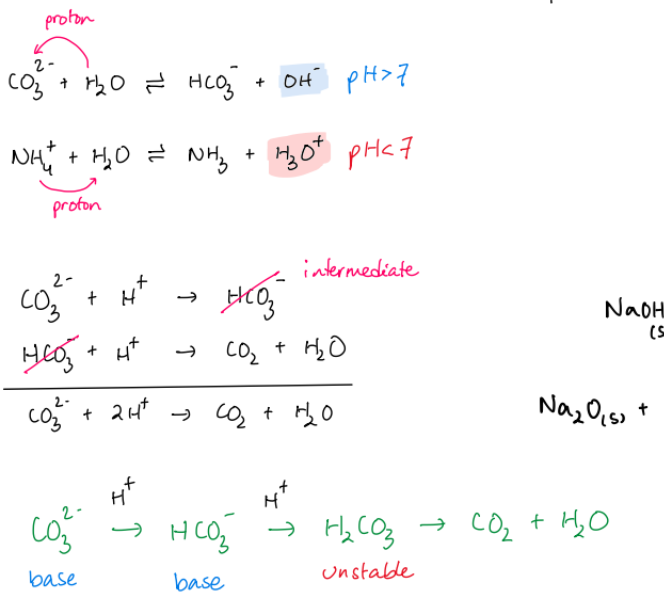 proton
CO₃²⁻ + H₂O ⇌ HCO₃⁻ + OH⁻ pH>7
NH₄⁺ + H₂O ⇌ NH₃ + H₃O⁺ pH<7
proton
intermediate
CO₃²⁻ + H⁺ → HCO₃⁻
HCO₃⁻ + H⁺ → CO₂ + H₂O
CO₃²⁻ + 2H⁺ → CO₂ + H₂O
NaOH
(s
Na₂O(s) +
H⁺ H⁺
CO₃²⁻ → HCO₃⁻ → H₂CO₃ → CO₂ + H₂O
base base unstable